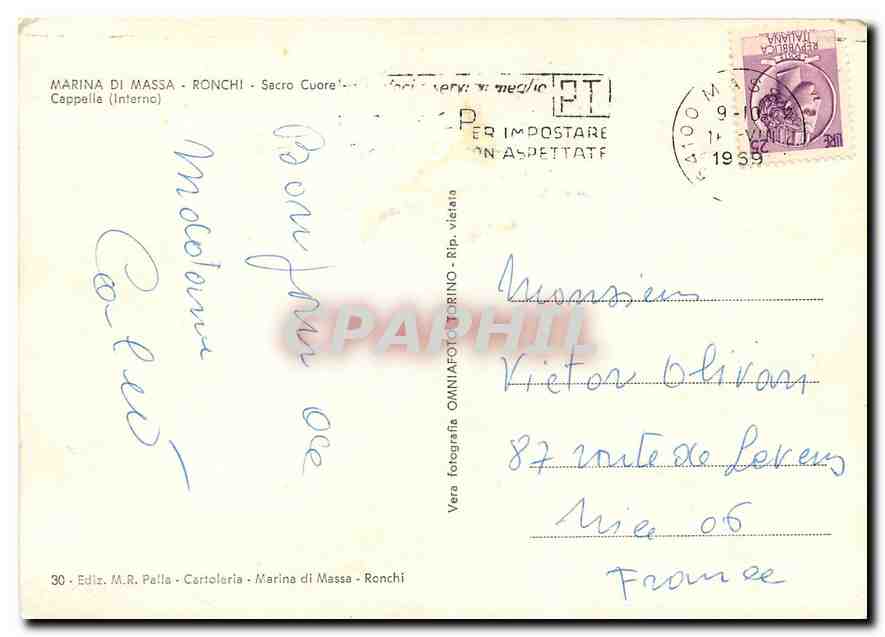 MARINA DI MASSA - RONCHI - Sacro Cuore
Cappella (Interno)
PT
PER IMPOSTARE
ON ASPETTATE
MAS
9-10
1969
REPVBBLICA
ITALIANA
LIRE 25
Bonjour de
Madame
Vera fotografia OMNIAFOTO TORINO - Rip. vietata
CPAPHIL
Monsieur
Victor Olivari
87 route de Levens
Nice 06
France
30 - Ediz. M.R. Palla - Cartoleria - Marina di Massa - Ronchi